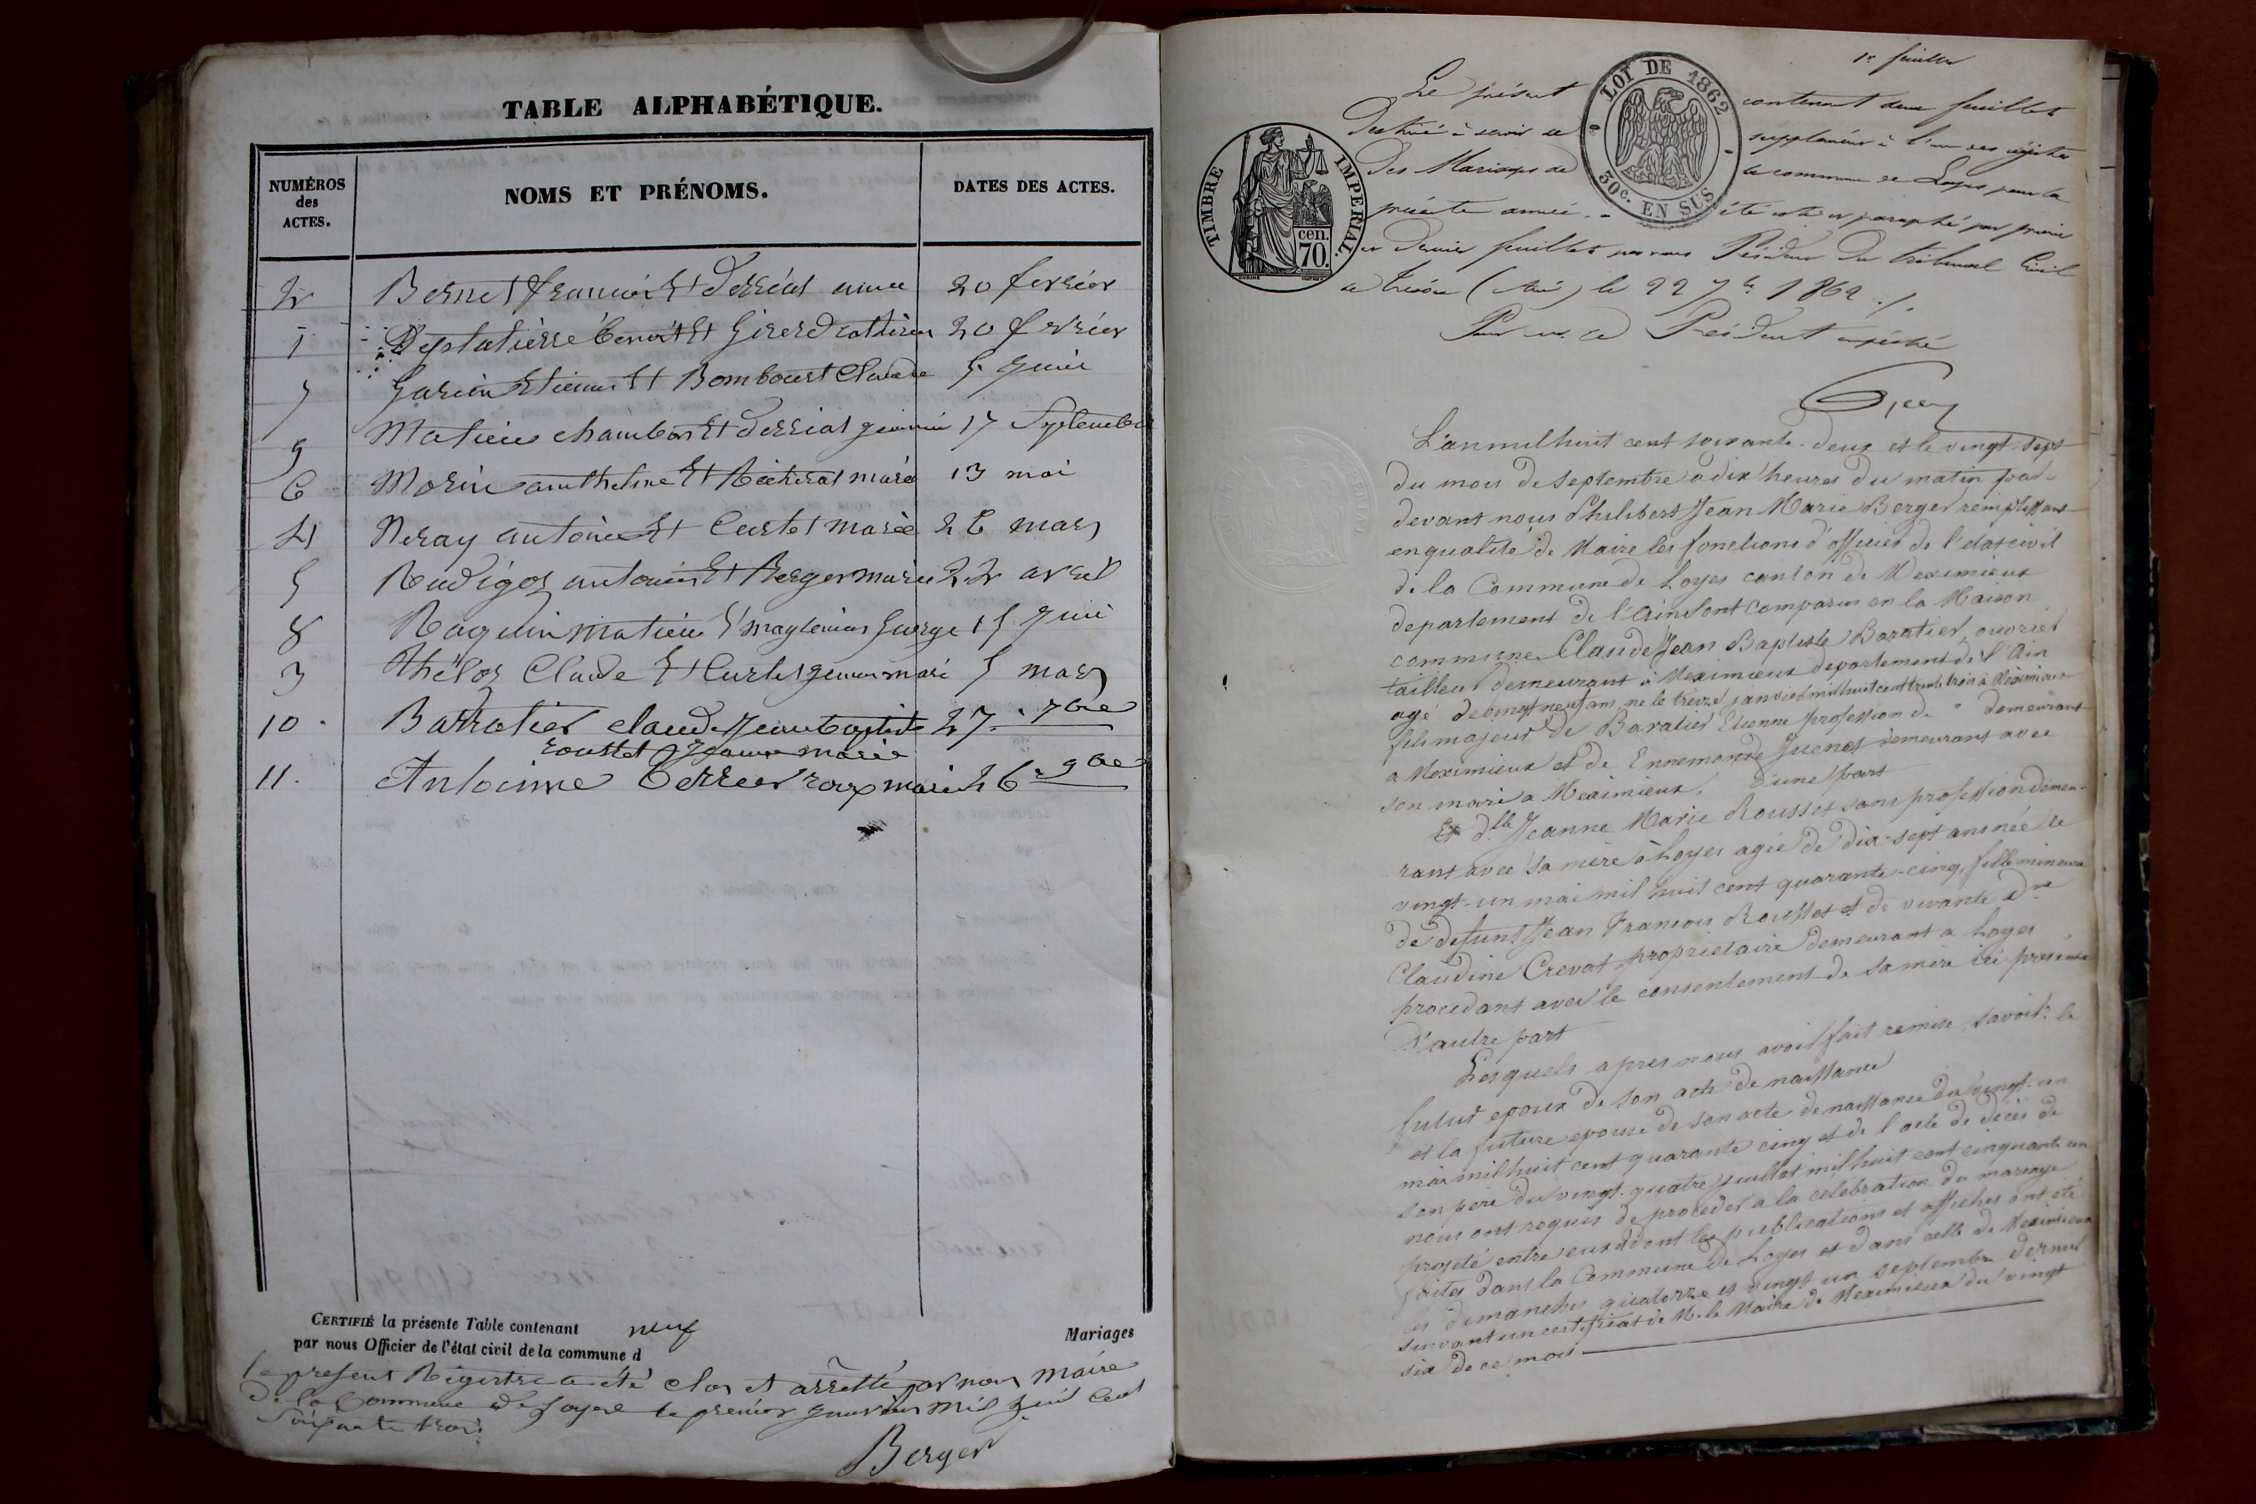 TABLE ALPHABÉTIQUE.
NUMÉROS des ACTES.
NOMS ET PRÉNOMS.
DATES DES ACTES.
2 Bernet françois Et derriat 20 ferrier
1 Deplatierre benoit Et Girerd 20 ferrier
7 Etienne Et Bombourt Claudre 5 Juin
9 Matieu chambon Et derriat 17 Septembre
6 Morin anthelme Et Richerat marie 13 mai
4 Neray antoine Et Curtet marie 26 mars
5 Rudigoz antoine Et Berger marie 22 avril
8 Raquin matieu Et 15 Juin
3 Thévoz Claude Et Curtet marie 5 mars
10. Barratier claude Jean baptiste 27. 7bre
roustet Jeanne marie
11. Antoinne roux marie 26 9bre
CERTIFIÉ la présente Table contenant neuf Mariages
par nous Officier de l'état civil de la commune d
le present Régistre a été clos et arretté par nous maire
De la Commune de Loyes le premier janvier mil huit cent
soixante trois
Berger
1er feuillet
Le présent contenant deux feuillets
Destiné à servir de supplément à l'un des registres
Des Mariages de la commune de Loyes pour la
présente année. a été coté et paraphé par premier
et dernier feuillet par nous Président du tribunal Civil
de Trévoux (Ain) le 22 7bre 1862 ./.
Pour le Président empêché
LOI DE 1862
30c. EN SUS
TIMBRE IMPERIAL.
cen.
70.
L'an mil huit cent soixante-deux et le vingt-sept
du mois de septembre à dix heures du matin par-
devant nous Philibert Jean Marie Berger remplissant
en qualité de Maire les fonctions d'officier de l'etat civil
de la Commune de Loyes canton de Meximieux
departement de l'Ain sont comparus en la Maison
commune Claude Jean Baptiste Baratier, ouvrier
tailleur demeurant à Meximieux departement de l'Ain
agé de vingt neuf ans, né le treize janvier mil huit cent trente trois à Meximieux
fils majeur de Baratier Etienne profession de " demeurant
a Meximieux et de Ennemonde Juenet demeurant avec
son mari a Meximieux. D'une part
Et dlle Jeanne Marie Rousset sans profession demeu-
rant avec sa mère à Loyes agée de dix-sept ans née le
vingt-un mai mil huit cent quarante-cinq, fille mineure
de defunt Jean Francois Rousset et de vivante dme
Claudine Crevat proprietaire demeurant a Loyes
procedant avec le consentement de sa mère ici présente
D'autre part
Lesquels apres nous avoir fait remise savoir: le
futur epoux de son acte de naissance
et la future epouse de son acte de naissance du vingt-un
mai mil huit cent quarante cinq et de l'acte de décès de
son père du vingt-quatre juillet mil huit cent cinquante un
nous ont requis de proceder a la celebration du mariage
projeté entre eux et dont les publications et affiches ont été
faites dans la Commune de Loyes et dans celle de Meximieux
les dimanches quatorze et vingt un septembre dernier
suivant un certificat de Mr le Maire de Meximieux du vingt
six de ce mois